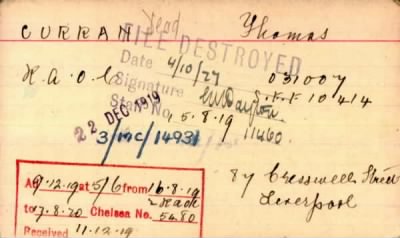 CURRAN Thomas
Dead
FILE DESTROYED
Date 4/10/27
R.A.O.C. 031007
Signature
S.S.F. 10414
Sta No. 11460
22 DEC 1919 15.8.19
3/MC/14931
Ad 9.12.19 at 5/6 from 16.8.19
87 Cresswell Street
to 17.8.20 Chelsea No. 5480
Liverpool
Received 11.12.19